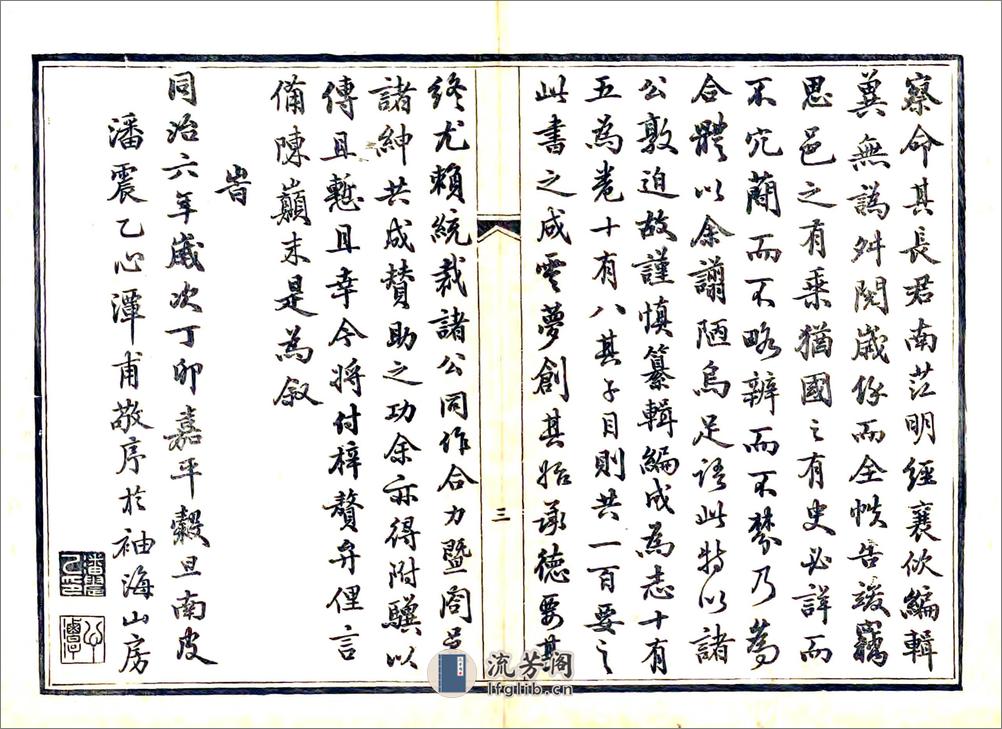 察命其長君南茳明經襄佽編輯
冀無譌舛閱歲餘而全帙告竣竊
思邑之有乘猶國之有史必詳而
不冗簡而不略辨而不棼乃為
合體以余謭陋烏足語此特以諸
公敦迫故謹慎纂輯編成為志十有
五為卷十有八其子目則共一百要之
此書之成雲夢創其始承德要其
三
終尤賴統裁諸公同作合力暨闔邑
諸紳共成贊助之功余亦得附驥以
傳且慙且幸今將付梓贅弁俚言
備陳巔末是為叙
旹
同治六年歲次丁卯嘉平穀旦南皮
潘震乙心潭甫敬序於袖海山房
流芳阁
lfglib.cn